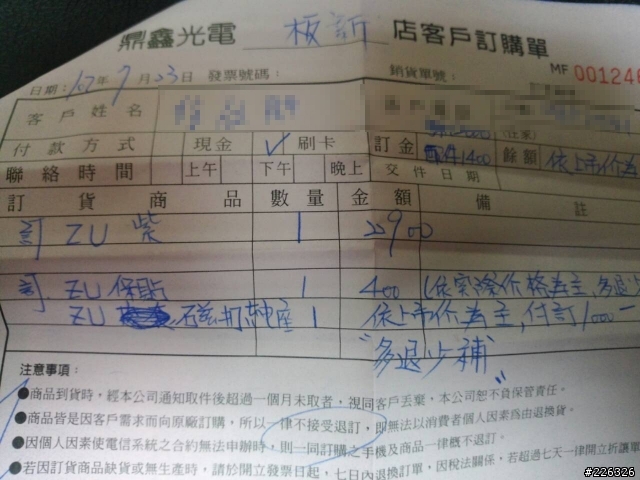 鼎鑫光電 板新 店客戶訂購單
日期:102年7月23日 發票號碼: 銷貨單號: MF 001246
客戶姓名
付款方式 現金 ✓刷卡 訂金 1400 餘額 依上市價為
聯絡時間 上午 下午 晚上 交件日期
訂貨商品 數量 金額 備註
訂 ZU 紫 1 2900
訂. ZU 保貼 1 400 (依實際價格為主,多退少
ZU 磁力充座 1 依上市價為主,付訂1000-
"多退少補"
注意事項:
●商品到貨時,經本公司通知取件後超過一個月未取者,視同客戶丟棄,本公司恕不負保管責任。
●商品皆是因客戶需求而向原廠訂購,所以一律不接受退訂,即無法以消費者個人因素為由退換貨。
●因個人因素使電信系統之合約無法申辦時,則一同訂購之手機及商品一律概不退訂。
●若因訂貨商品缺貨或無生產時,請於開立發票日起,七日內退換訂單,因稅法關係,若超過七天一律開立折讓單
#226326